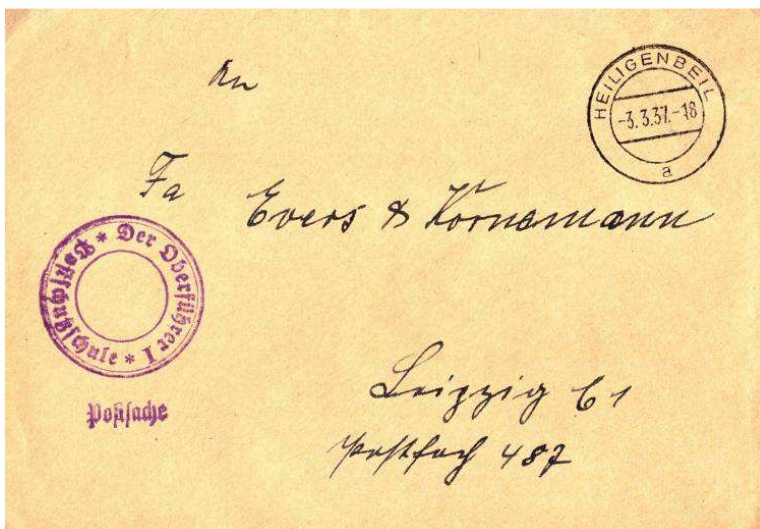 An
HEILIGENBEIL
-3.3.37.-18
a
Fa Evers & Kornemann
* Der Oberführer I * Postschutzschule
Postsache
Leipzig C1
Postfach 487